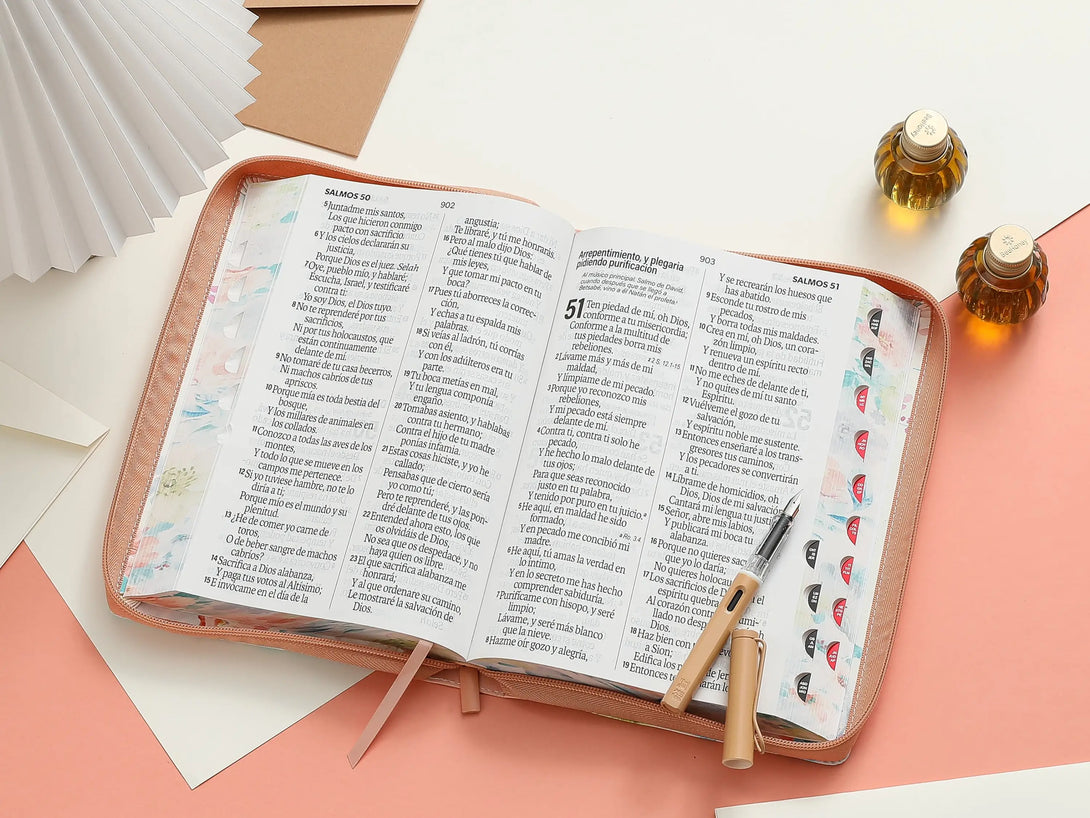 SALMOS 50
902
5Juntadme mis santos,
Los que hicieron conmigo
pacto con sacrificio.
6Y los cielos declararán su
justicia,
Porque Dios es el juez. Selah
7Oye, pueblo mío, y hablaré;
Escucha, Israel, y testificaré
contra ti:
Yo soy Dios, el Dios tuyo.
8No te reprenderé por tus
sacrificios,
Ni por tus holocaustos, que
están continuamente
delante de mí.
9No tomaré de tu casa becerros,
Ni machos cabríos de tus
apriscos.
10Porque mía es toda bestia del
bosque,
Y los millares de animales en
los collados.
11Conozco a todas las aves de los
montes,
Y todo lo que se mueve en los
campos me pertenece.
12Si yo tuviese hambre, no te lo
diría a ti;
Porque mío es el mundo y su
plenitud.
13¿He de comer yo carne de
toros,
O de beber sangre de machos
cabríos?
14Sacrifica a Dios alabanza,
Y paga tus votos al Altísimo;
15E invócame en el día de la
angustia;
Te libraré, y tú me honrarás.
16Pero al malo dijo Dios:
¿Qué tienes tú que hablar de
mis leyes,
Y que tomar mi pacto en tu
boca?
17Pues tú aborreces la correc-
ción,
Y echas a tu espalda mis
palabras.
18Si veías al ladrón, tú corrías
con él,
Y con los adúlteros era tu
parte.
19Tu boca metías en mal,
Y tu lengua componía
engaño.
20Tomabas asiento, y hablabas
contra tu hermano;
Contra el hijo de tu madre
ponías infamia.
21Estas cosas hiciste, y yo he
callado;
Pensabas que de cierto sería
yo como tú;
Pero te reprenderé, y las pon-
dré delante de tus ojos.
22Entended ahora esto, los que
os olvidáis de Dios,
No sea que os despedace, y no
haya quien os libre.
23El que sacrifica alabanza me
honrará;
Y al que ordenare su camino,
Le mostraré la salvación de
Dios.
903
SALMOS 51
Arrepentimiento, y plegaria
pidiendo purificación
Al músico principal. Salmo de David,
cuando después que se llegó a
Betsabé, vino a él Natán el profeta.
51 Ten piedad de mí, oh Dios,
conforme a tu misericordia;
Conforme a la multitud de
tus piedades borra mis
rebeliones.
2Lávame más y más de mi
maldad,
Y límpiame de mi pecado.
3Porque yo reconozco mis
rebeliones,
Y mi pecado está siempre
delante de mí.
4Contra ti, contra ti solo he
pecado,
Y he hecho lo malo delante de
tus ojos;
Para que seas reconocido
justo en tu palabra,
Y tenido por puro en tu juicio.
5He aquí, en maldad he sido
formado,
Y en pecado me concibió mi
madre.
6He aquí, tú amas la verdad en
lo íntimo,
Y en lo secreto me has hecho
comprender sabiduría.
7Purifícame con hisopo, y seré
limpio;
Lávame, y seré más blanco
que la nieve.
8Hazme oír gozo y alegría,
Y se recrearán los huesos que
has abatido.
9Esconde tu rostro de mis
pecados,
Y borra todas mis maldades.
10Crea en mí, oh Dios, un cora-
zón limpio,
Y renueva un espíritu recto
dentro de mí.
11No me eches de delante de ti,
Y no quites de mí tu santo
Espíritu.
12Vuélveme el gozo de tu
salvación,
Y espíritu noble me sustente.
13Entonces enseñaré a los trans-
gresores tus caminos,
Y los pecadores se convertirán
a ti.
14Líbrame de homicidios, oh
Dios, Dios de mi salvación
Cantará mi lengua tu
15Señor, abre mis labios,
Y publicará mi boca tu
alabanza.
16Porque no quieres
que yo lo daría;
No quieres
17Los sacrificios de
espíritu
Al corazón
llado no
Dios.
18Haz bien con
a Sion;
Edifica los
19Entonces